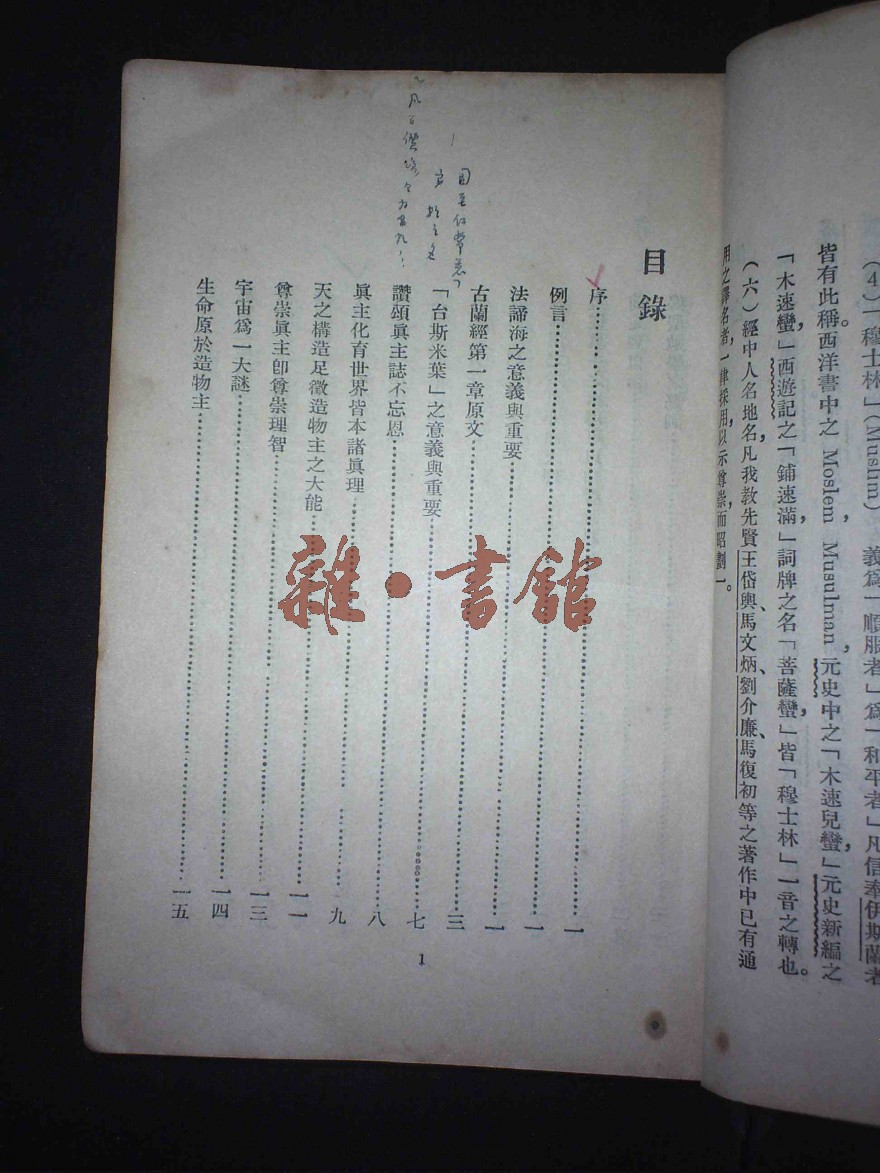 （4）「穆士林」（Muslim）義爲「順服者」爲「和平者」凡信奉伊斯蘭者
皆有此稱。西洋書中之 Moslem，Musulman，元史中之「木速兒蠻」，元史新編之
「木速蠻」，西遊記之「鋪速滿」，詞牌之名「菩薩蠻」，皆「穆士林」一音之轉也。
（六）經中人名地名，凡我教先賢王岱輿、馬文炳、劉介廉、馬復初等之著作中已有通
用之譯名者，一律採用，以示尊崇，而昭劃一。
目錄
序…………一
例言…………一
法諦海之意義與重要…………一
古蘭經第一章原文…………三
「台斯米葉」之意義與重要…………七
讚頌眞主誌不忘恩…………八
眞主化育世界皆本諸眞理…………九
天之構造足徵造物主之大能…………一一
尊崇眞主卽尊崇理智…………一三
宇宙爲一大謎…………一四
生命原於造物主…………一五
1
雜·書館